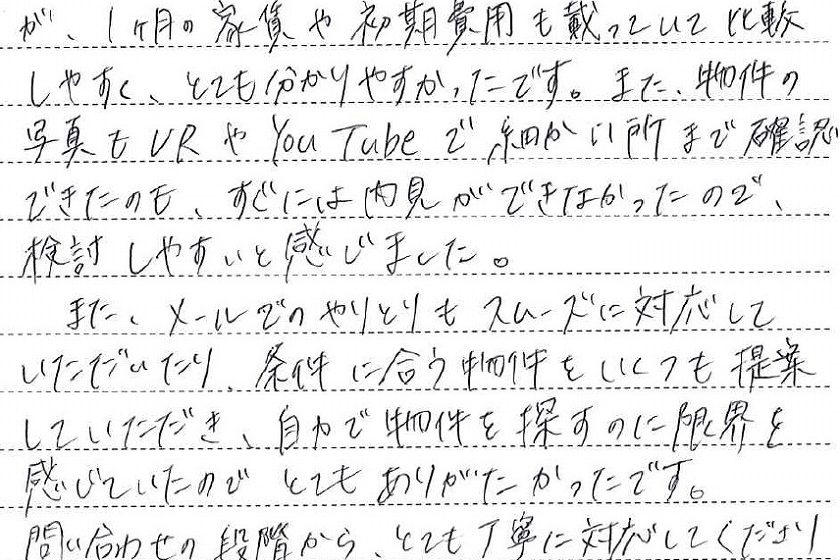 が、1ヶ月の家賃や初期費用も載っていて比較
しやすく、とても分かりやすかったです。また、物件の
写真もVRやYouTubeで細かい所まで確認
できたのも、すぐには内見ができなかったので、
検討しやすいと感じました。
また、メールでのやりとりもスムーズに対応して
いただいたり、条件に合う物件をいくつも提案
していただき、自力で物件を探すのに限界を
感じていたのでとてもありがたかったです。
問い合わせの段階から、とても丁寧に対応してくださり